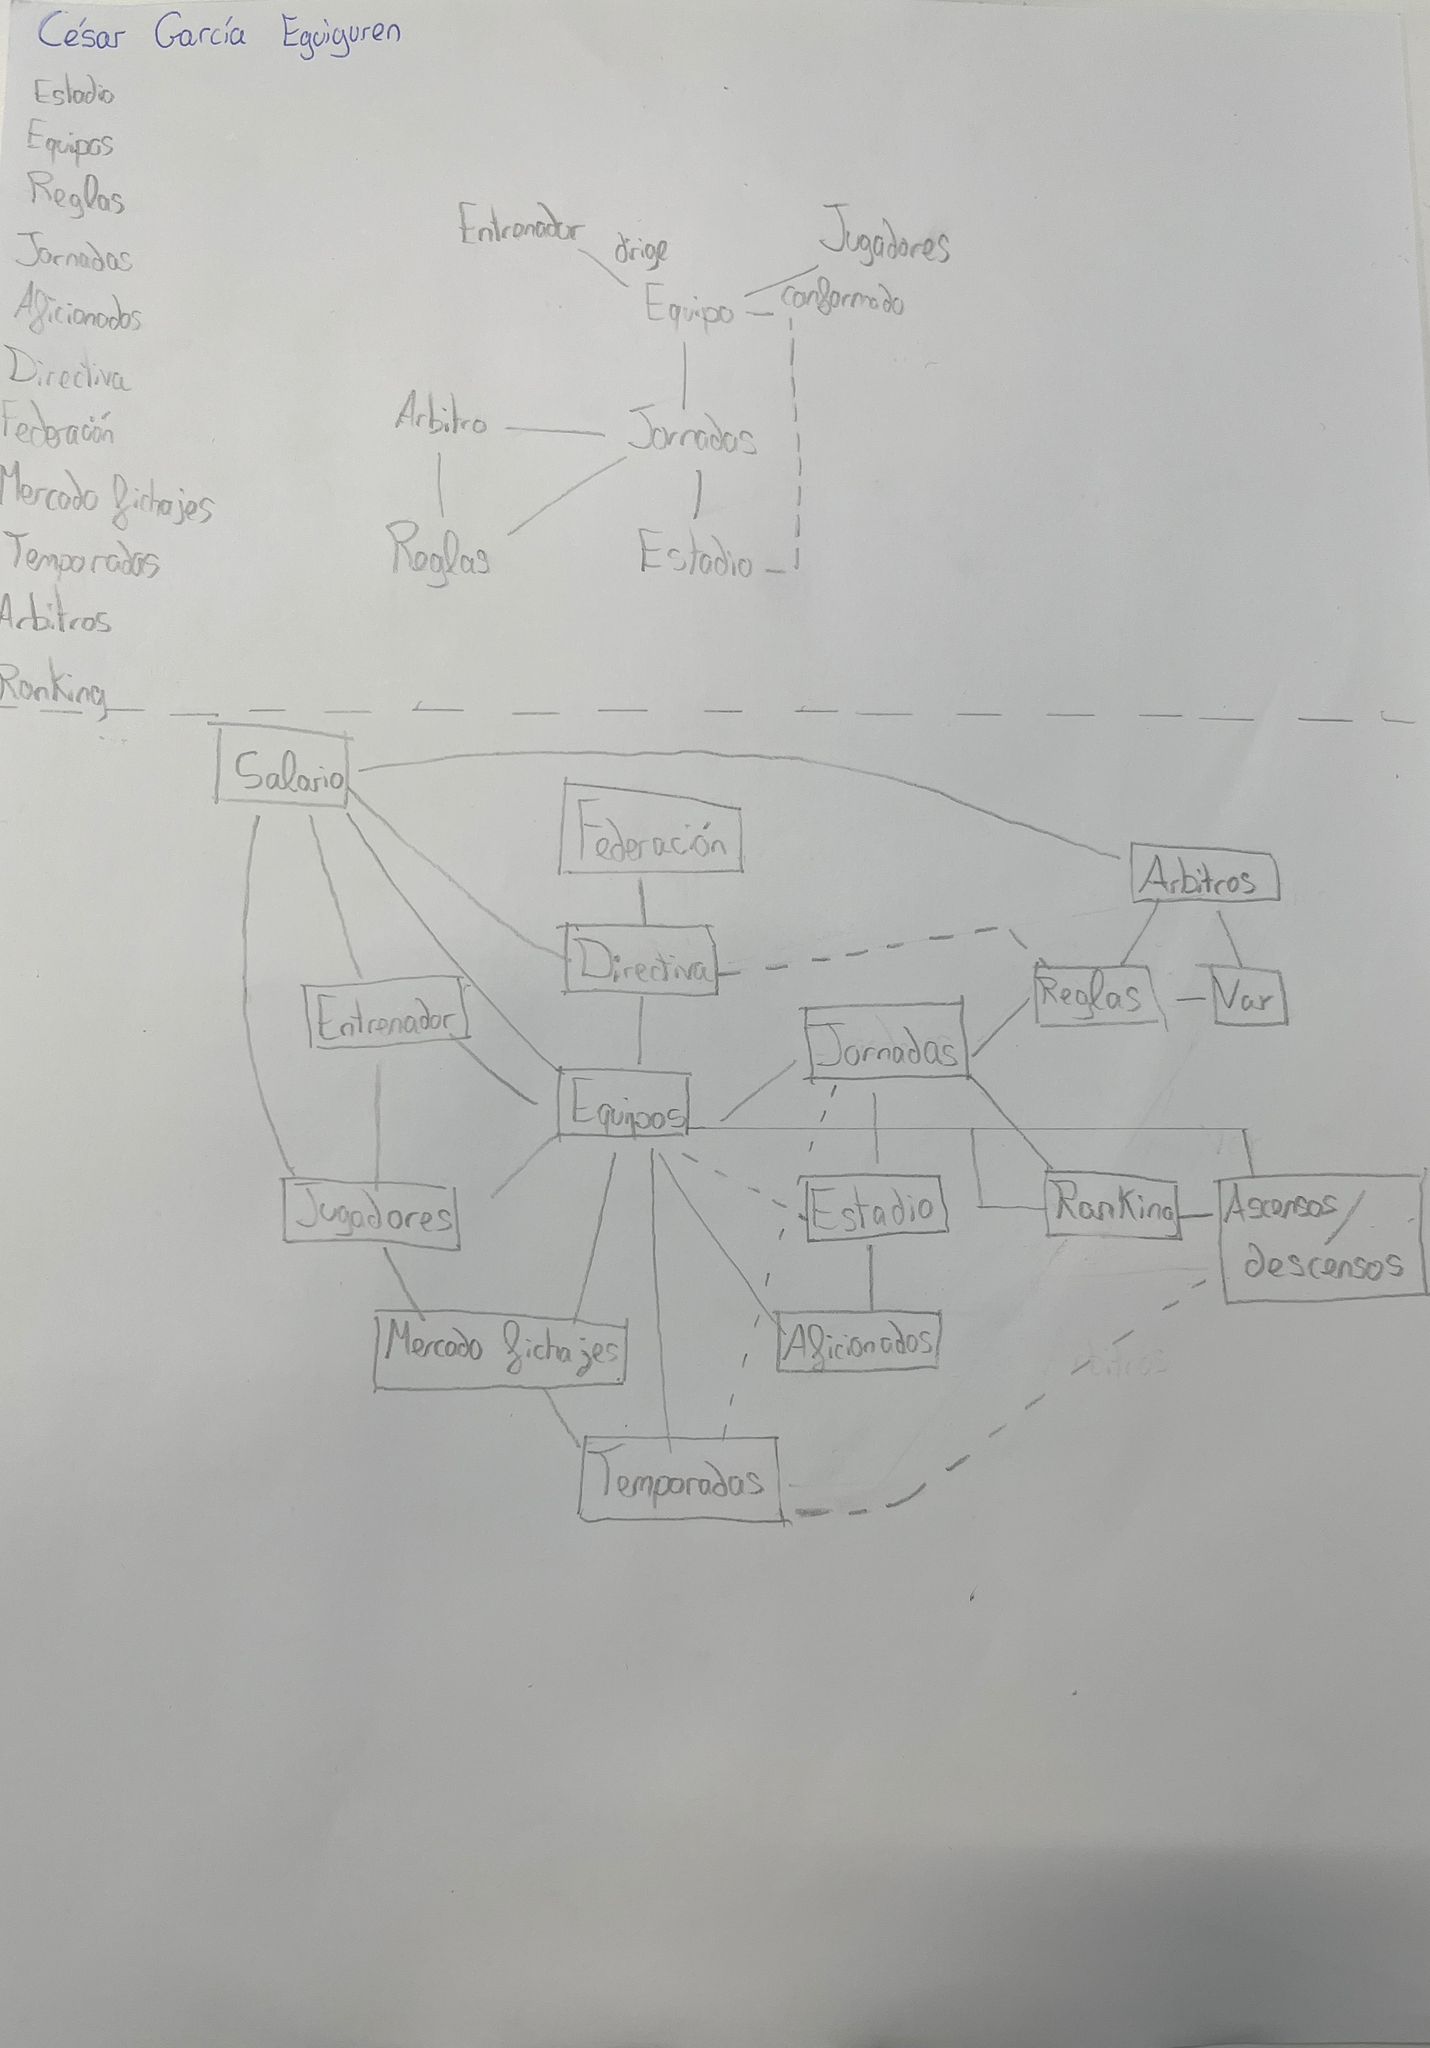 César García Eguiguren
Estadio
Equipos
Reglas
Jornadas
Aficionados
Directiva
Federación
Mercado fichajes
Temporadas
Arbitros
Ranking
Entrenador
dirige
Jugadores
Equipo
conformado
Arbitro
Jornadas
Reglas
Estadio
Salario
Federación
Arbitros
Directiva
Reglas
Var
Entrenador
Jornadas
Equipos
Jugadores
Estadio
Ranking
Ascensos/
descensos
Mercado fichajes
Aficionados
Temporadas